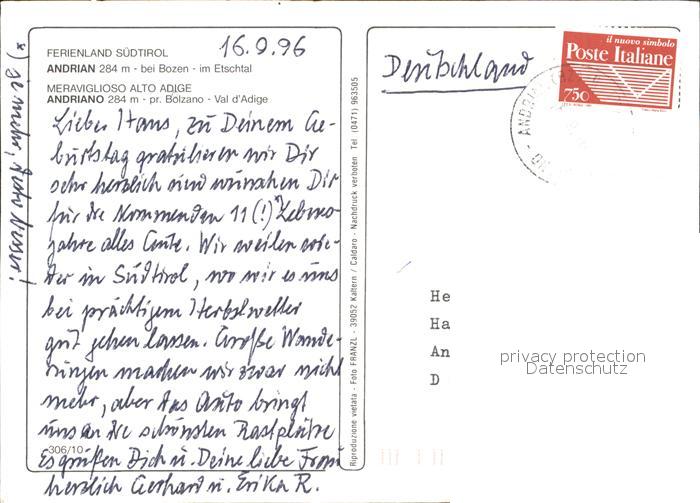 FERIENLAND SÜDTIROL
16.9.96
ANDRIAN 284 m - bei Bozen - im Etschtal
MERAVIGLIOSO ALTO ADIGE
ANDRIANO 284 m - pr. Bolzano - Val d'Adige
Lieber Hans, zu Deinem Ge-
burtstag gratulieren wir Dir
sehr herzlich und wünschen Dir
für die kommenden 11(!) Lebens-
jahre alles Gute. Wir weilen wie-
der in Südtirol, wo wir es uns
bei prächtigem Herbstwetter
gut gehen lassen. Große Wande-
rungen machen wir zwar nicht
mehr, aber das Auto bringt
uns an die schönsten Rastplätze
306/10
Es grüßen Dich u. Deine liebe Frau
herzlich Gerhard u. Erika R.
*) je mehr, desto besser!
Riproduzione vietata - Foto FRANZL - 39052 Kaltern / Caldaro - Nachdruck verboten Tel (0471) 963505
Deutschland
il nuovo simbolo
Poste Italiane
750
ANDRIAN
He
Ha
An
D
privacy protection
Datenschutz